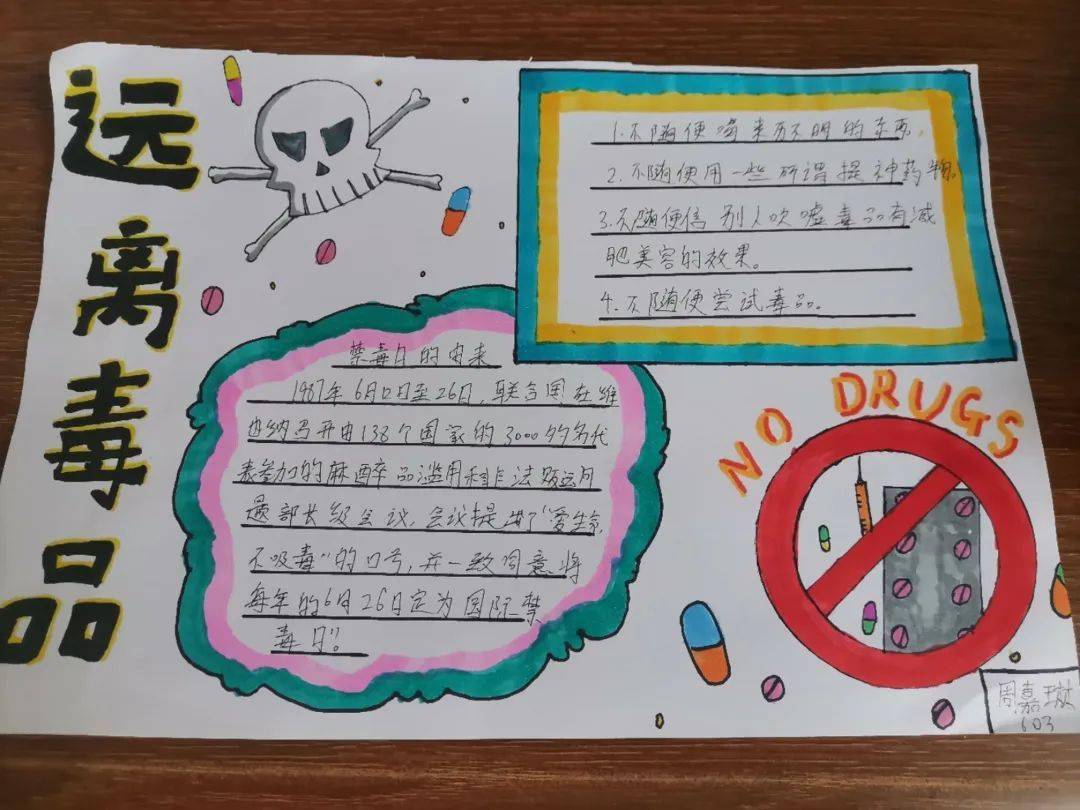 远离毒品
1.不随便喝来历不明的东西.
2.不随便用一些所谓提神药物.
3.不随便信别人吹嘘毒品有减
肥美容的效果。
4.不随便尝试毒品。
禁毒日的由来
1987年6月 日至26日,联合国在维
也纳召开由138个国家的3000的名代
表参加的麻醉品滥用和非法贩运问
题部长级会议,会议提出了“爱生命,
不吸毒”的口号,并一致同意将
每年的6月26日定为国际禁
毒日!
NO DRUGS
周嘉
603